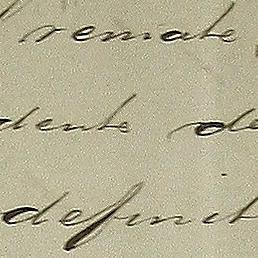 remate
dente de
definit